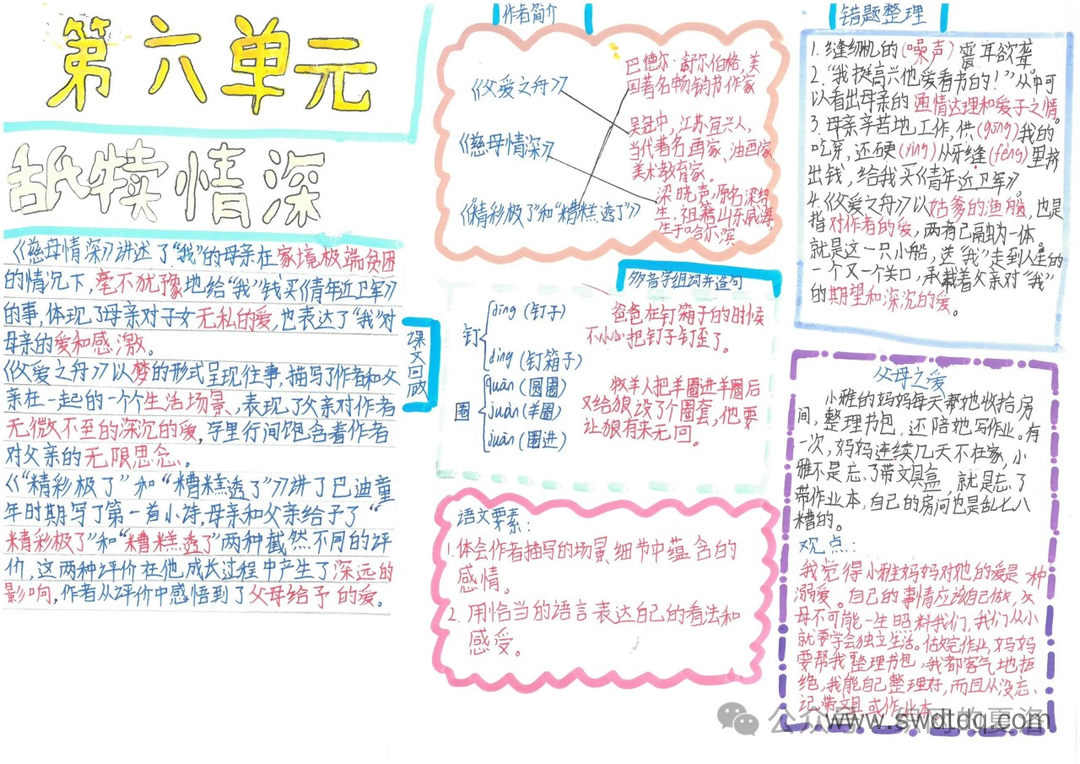 第六单元
舐犊情深
《慈母情深》讲述了“我”的母亲在家境极端贫困
的情况下,毫不犹豫地给“我”钱买《青年近卫军》
的事,体现了母亲对子女无私的爱,也表达了“我”对
母亲的爱和感激。
《父爱之舟》以梦的形式呈现往事,描写了作者和父
亲在一起的一个个生活场景、表现了父亲对作者
无微不至的深沉的爱,字里行间饱含着作者
对父亲的无限思念。
《“精彩极了”和“糟糕透了”》讲了巴迪童
年时期写了第一首小诗,母亲和父亲给予了“
精彩极了”和“糟糕透了”两种截然不同的评
价,这两种评价在他成长过程中产生了深远的
影响,作者从评价中感悟到了父母给予的爱。
课文回顾
作者简介
《父爱之舟》
《慈母情深》
《“精彩极了”和“糟糕透了”》
巴德尔·舒尔伯格,美
国著名畅销书作家
吴冠中,江苏宜兴人,
当代著名画家、油画家、
美术教育家。
梁晓声,原名梁绍
生,祖籍山东威海,
生于哈尔滨
多音字组词并造句
钉
dīng(钉子)
dìng(钉箱子)
爸爸在钉箱子的时候
不小心把钉子钉歪了。
圈
quān(圆圈)
juàn(羊圈)
juān(圈进)
牧羊人把羊圈进羊圈后
又给狼设了个圈套,他要
让狼有来无回。
语文要素:
1.体会作者描写的场景、细节中蕴含的
感情。
2.用恰当的语言表达自己的看法和
感受。
错题整理
1.缝纫机的(噪声)震耳欲聋。
2.“我挺高兴他爱看书的!”从中可
以看出母亲的通情达理和爱子之情。
3.母亲辛苦地工作,供(gōng)我的
吃穿,还硬(yìng)从牙缝(fèng)里挤
出钱,给我买《青年近卫军》。
4.《父爱之舟》以姑爹的渔船,也是
指对作者的爱,两者已融为一体
就是这一只小船,送“我”走到人生的
一个又一个关口,承载着父亲对“我”
的期望和深沉的爱。
父母之爱
小雅的妈妈每天帮他收拾房
间,整理书包,还陪他写作业。有
一次,妈妈连续几天不在家,小
雅不是忘了带文具盒 就是忘了
带作业本,自己的房间也是乱七八
糟的。
观点:
我觉得小雅妈妈对他的爱是一种
溺爱。自己的事情应该自己做,父
母不可能一生照料我们,我们从小
就要学会独立生活。做完作业,妈妈
要帮我整理书包,我都客气地拒
绝,我能自己整理好,而且从没忘
记带文具或作业本
公众号
www.swdtdq.com